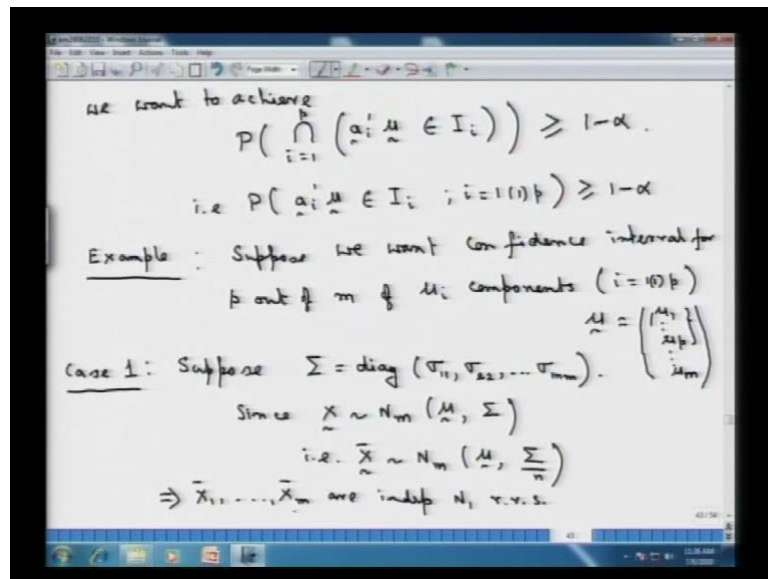 File Edit View Insert Actions Tools Help
Page Width
we want to achieve
P( ⋂_{i=1}^{p} (a_i' μ ∈ I_i)) ≥ 1-α .
i.e P( a_i' μ ∈ I_i ; i=1(1)p ) ≥ 1-α
Example : Suppose we want confidence interval for
p out of m of μ_i components (i=1(1)p)
μ = (μ_1 ⋮ μ_p ⋮ μ_m)
Case 1: Suppose Σ = diag (σ_11, σ_22, ... σ_mm).
Since X ~ N_m (μ, Σ)
i.e. X̄ ~ N_m (μ, Σ/n)
⇒ X̄_1, ...., X̄_m are indep N_1 r.v.s.
43